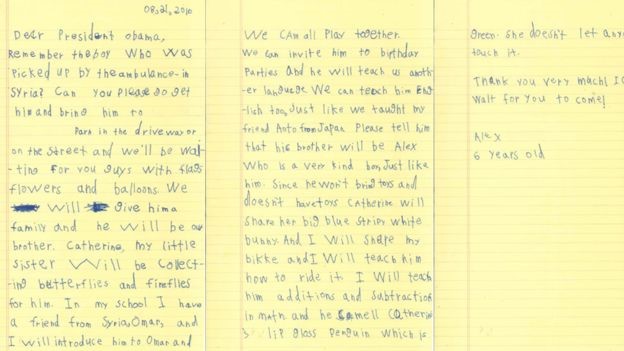 08,21,2010
Dear President Obama,
Remember the boy who was
picked up by the ambulance in
Syria? Can you please go get
him and bring him to
Park in the driveway or
on the street and we'll be wai-
ting for you guys with flags
flowers and balloons. We
will give him a
family and he will be our
brother. Catherine, my little
sister will be collect-
ing butterflies and fireflies
for him. In my school I have
a friend from Syria, Omar, and
I will introduce him to Omar and
We can all play together.
We can invite him to birthday
parties and he will teach us anoth-
er language. We can teach him Eng-
lish too, Just like we taught my
friend Aoto from Japan Please tell him
that his brother will be Alex
who is a very kind boy, Just like
him. Since he won't bring toys and
doesn't have toys Catherine will
share her big blue stripy white
bunny. And I will share my
bikke and I will teach him
how to ride it. I will teach
him additions and subtraction
in math. and he smell Catherine
lip gloss penguin which is
green. She doesn't let any
touch it.
Thank you very much! I
wait for you to come!
Alex
6 years old